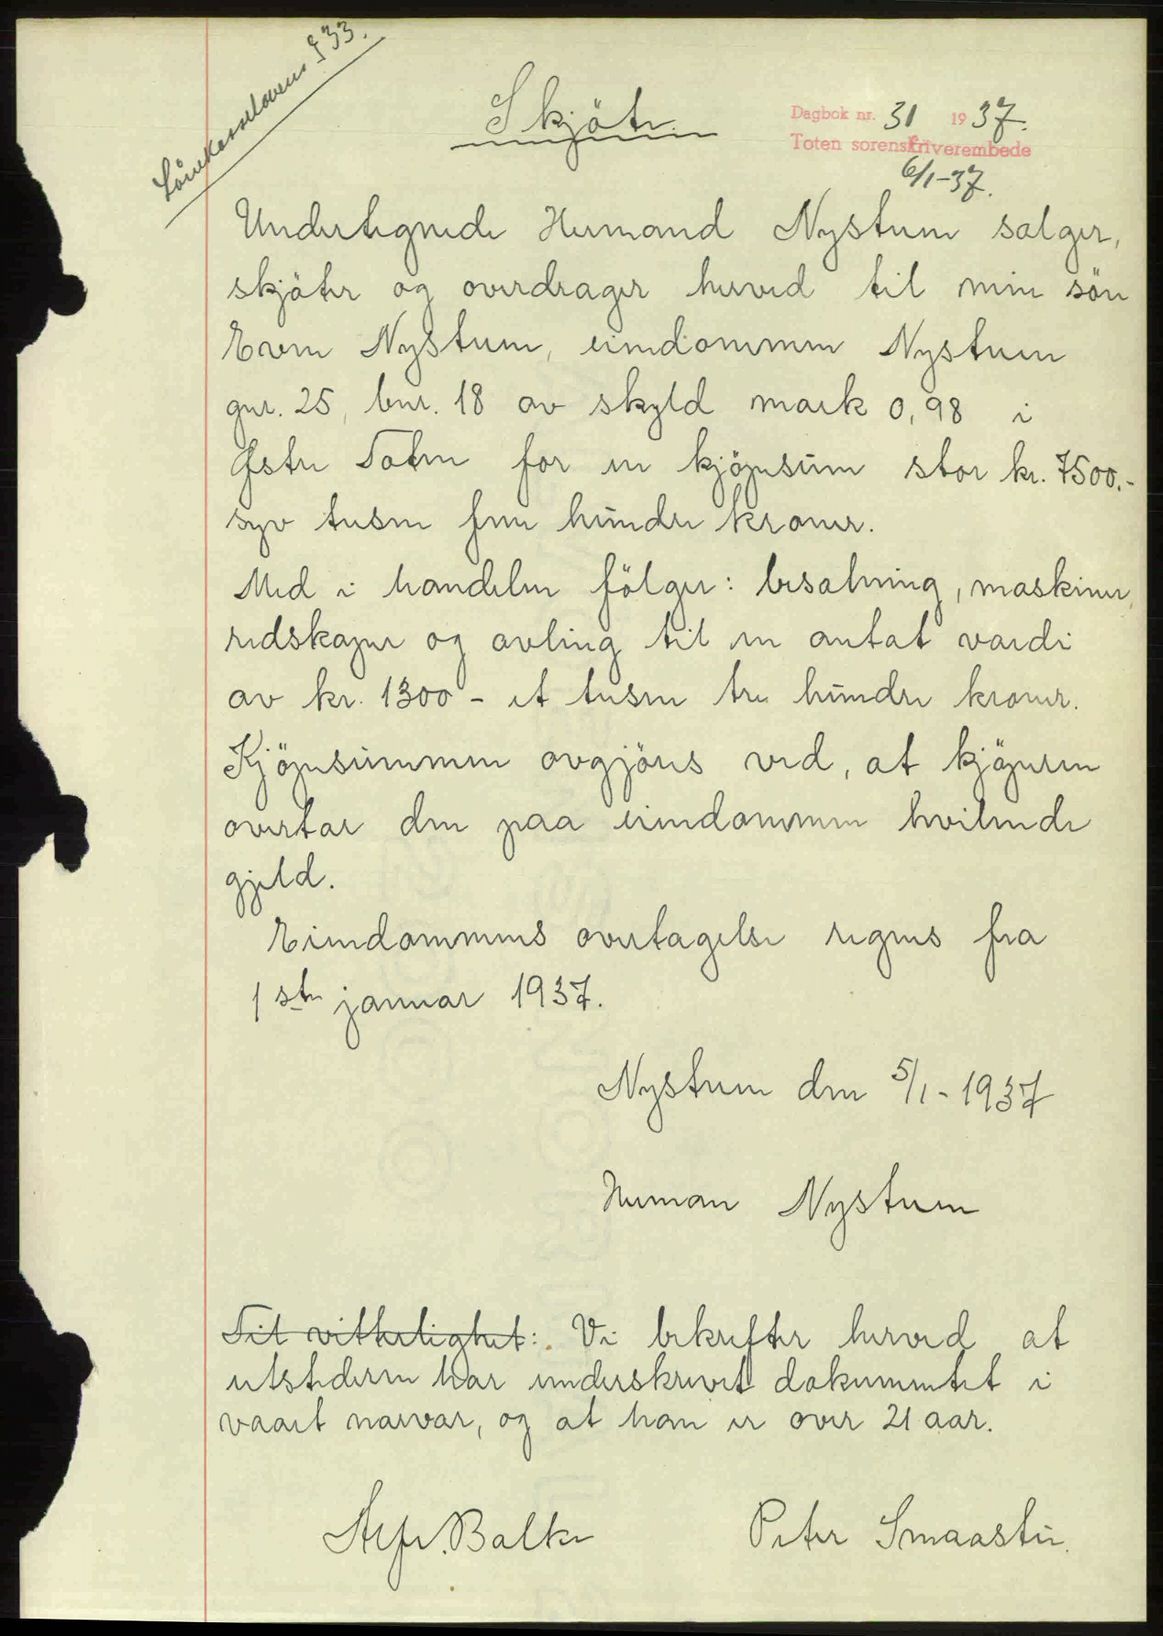 Lånekasselovens § 33.
Skjöte.
Dagbok nr. 31 1937.
Toten sorenskriverembede
6/1-37.
Undertegnede Hermand Nystuen selger,
skjöter og overdrager herved til min sön
Even Nystuen, eiendommen Nystuen
gnr. 25, bnr. 18 av skyld mark 0,98 i
Østre Toten for en kjöpesum stor kr. 7500.-
syv tusen fem hundre kroner.
Med i handelen fölger: besætning, maskiner,
redskaper og avling til en antat værdi
av kr. 1300 - et tusen tre hundre kroner.
Kjöpesummen avgjöres ved, at kjöperen
overtar den paa eiendommen hvilende
gjeld.
Eiendommens overtagelse regnes fra
1ste januar 1937.
Nystuen den 5/1 - 1937
Herman Nystuen
Til vitterlighet: Vi bekrefter herved at
utstederen har underskrevet dokumentet i
vaart nærvær, og at han er over 21 aar.
Alfr. Balke Peter Smaastu.